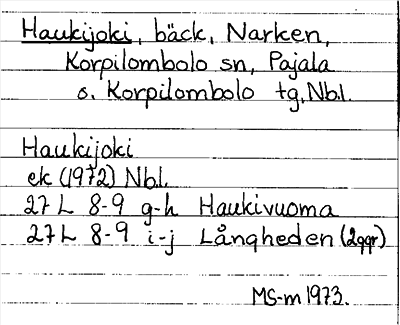 Haukijoki, bäck, Narken,
Korpilombolo sn, Pajala
o. Korpilombolo tg, Nbl.
Haukijoki
ek (1972) Nbl.
27 L 8-9 g-h Haukivuoma
27 L 8-9 i-j Långheden (2ggr)
MS-m 1973.